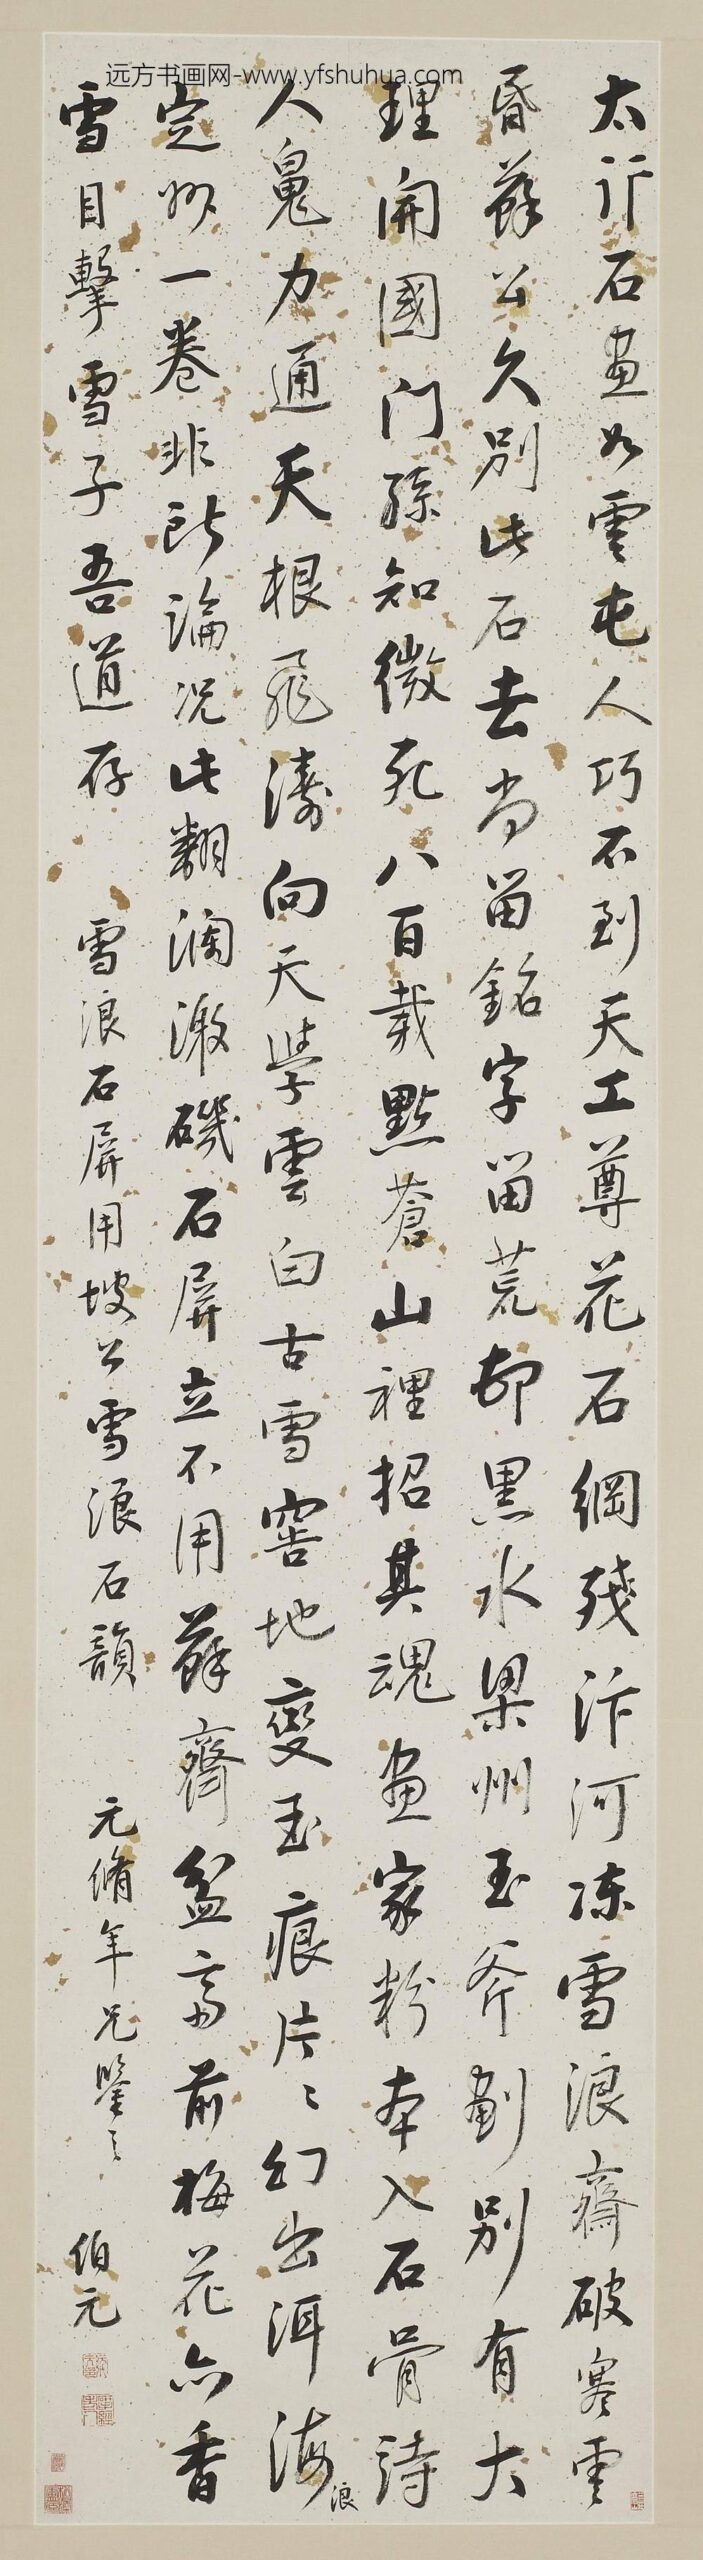 远方书画网-www.yfshuhua.com
太行石畫如雲屯人巧不到天工尊花石綱殘汴河凍雪浪齋破寒雲
昏蘇公久別此石去尚留銘字留荒邨黑水梁州玉斧劃別有大
理開國門孫知微死八百載點蒼山裡招其魂畫家粉本入石骨詩
人鬼力通天根飛濤向天學雲白古雪窖地變玉痕片〻幻出洱海浪
定州一卷非所論況此翻瀾激磯石屏立不用蘇齋盆齋前梅花亦香
雪目擊雪子吾道存 雪浪石屏用坡公雪浪石韻 元脩年兄鑒之 伯元